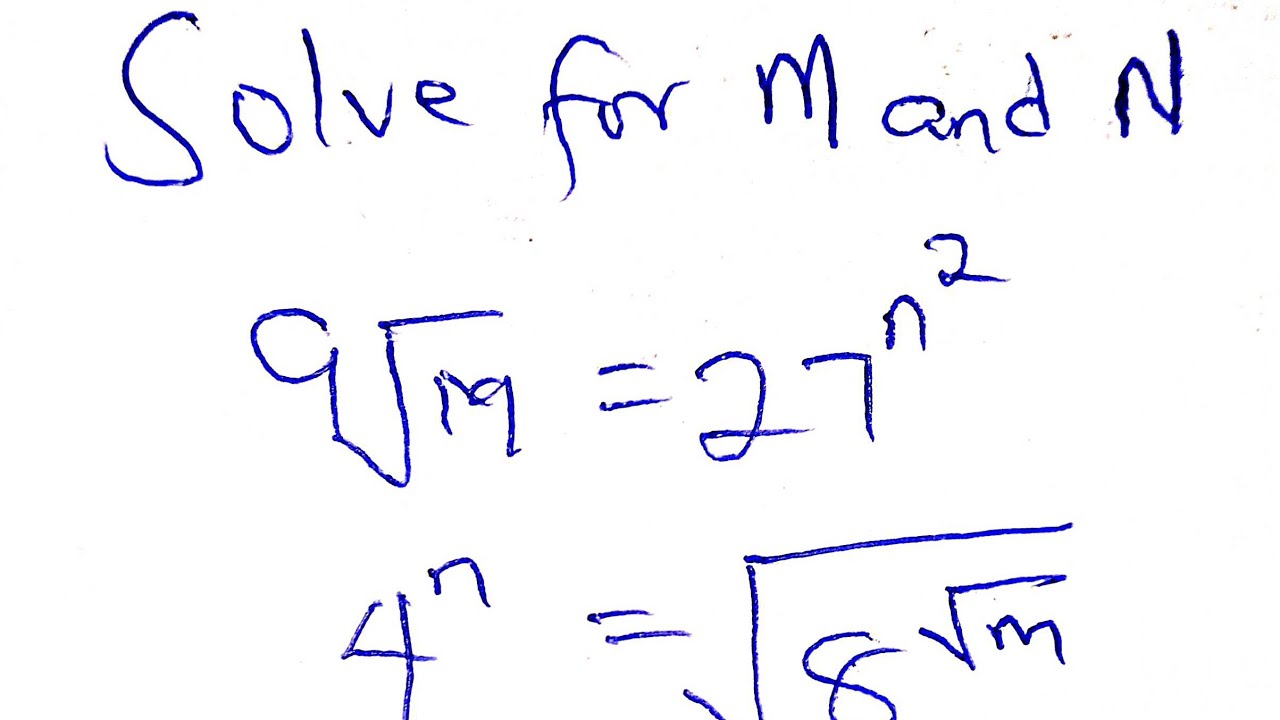 Solve for M and N
9√m = 27^n^2
4^n = √(8^√m)